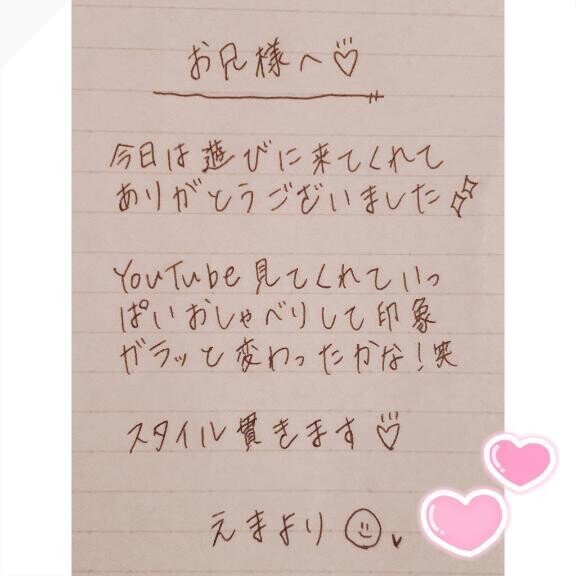 お兄様へ♡
今日は遊びに来てくれて
ありがとうございました
YouTube見てくれていっ
ぱいおしゃべりして印象
ガラッと変わったかな!笑
スタイル貫きます♡
えまより